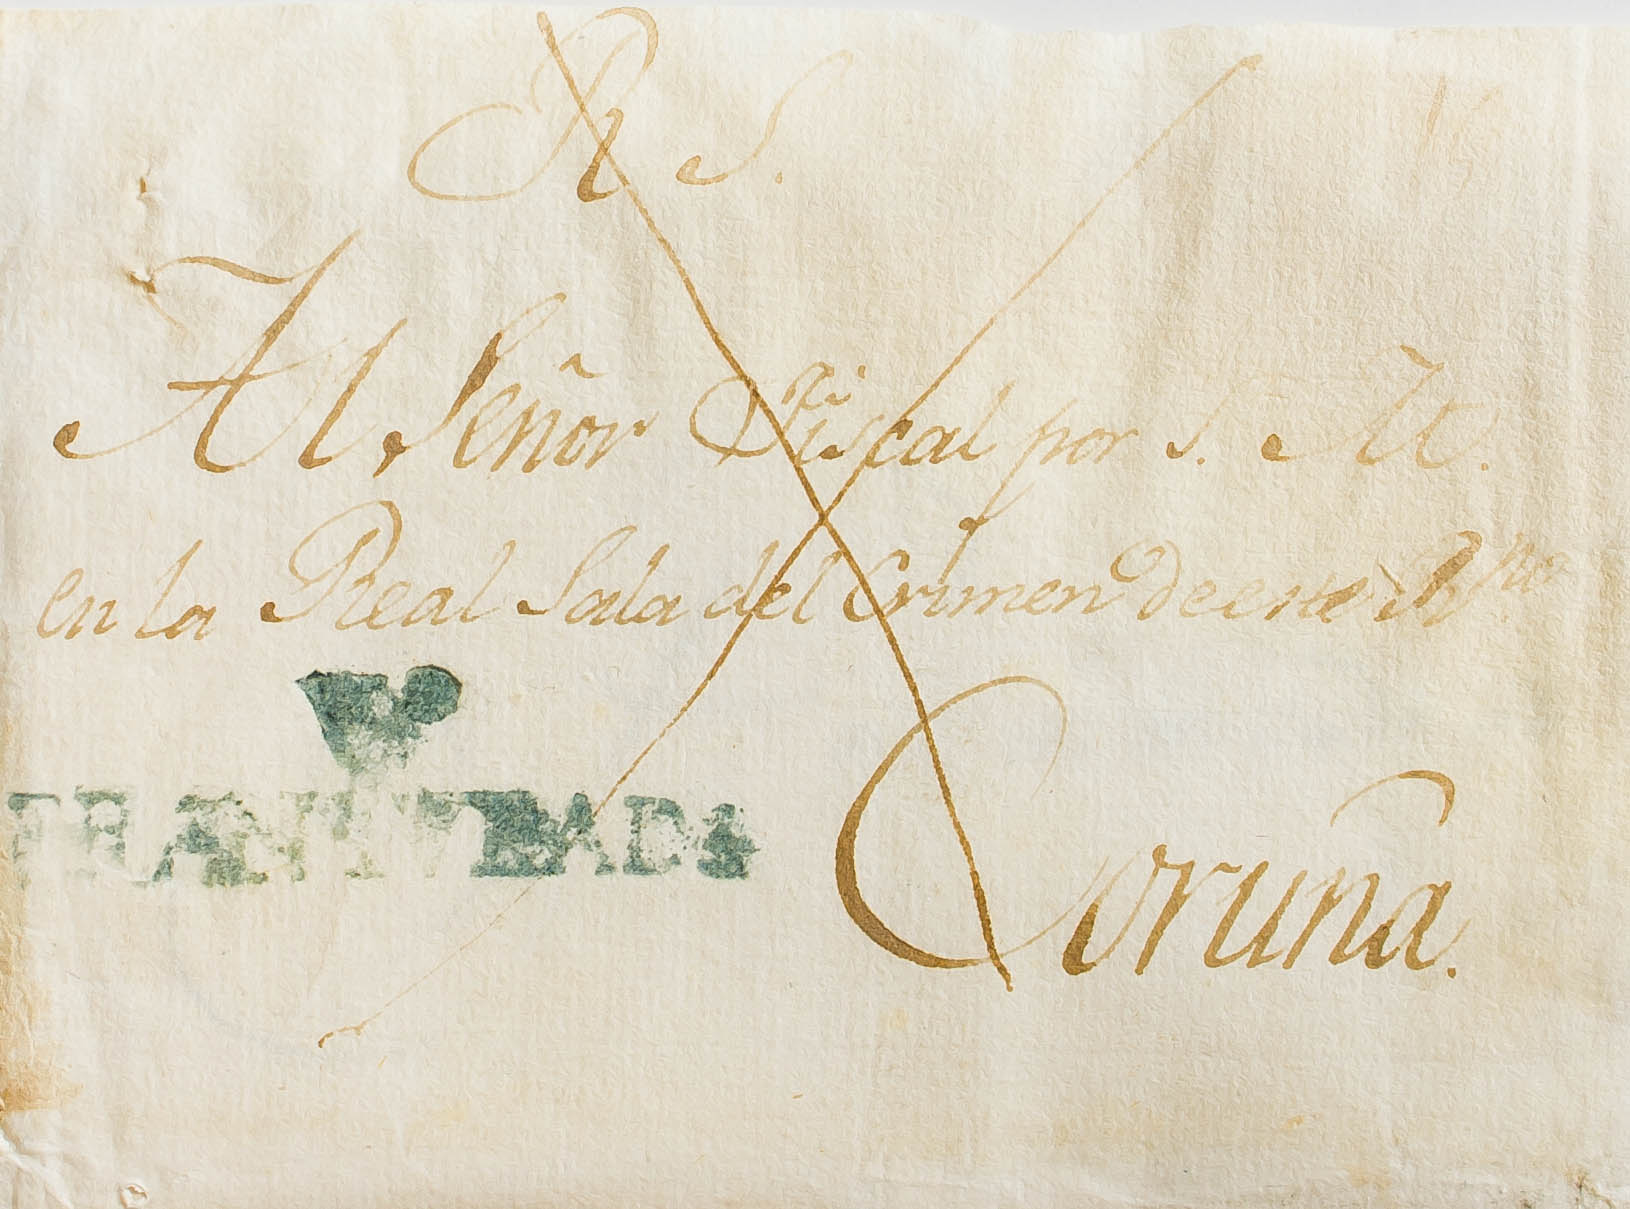 R. S.
Al Señor Fiscal por S. M.
en la Real Sala del Crimen de este R.no
Coruña.